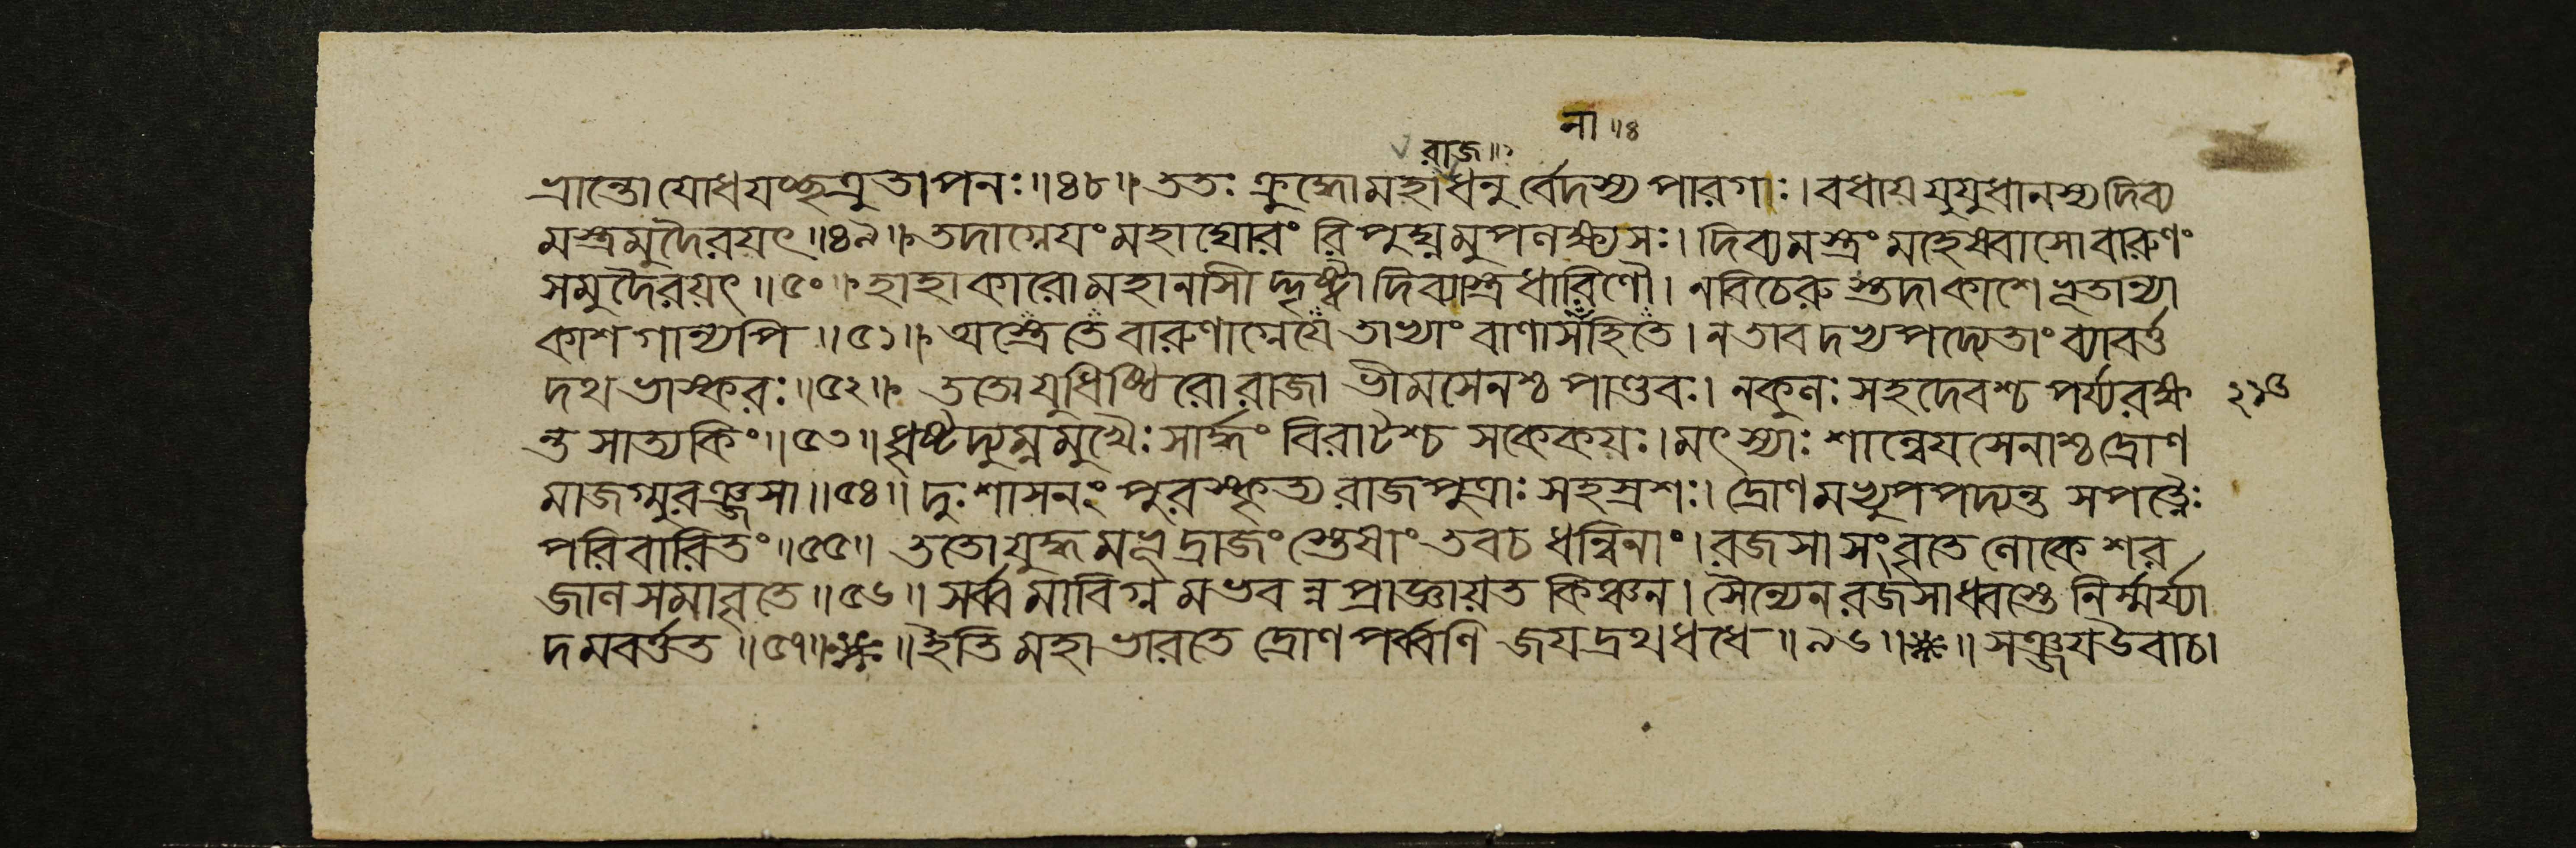 না ॥৪
রাজ॥১
ভ্রান্তো যোধয়চ্ছত্রুতাপনঃ॥৪৮॥ ততঃ ক্রুদ্ধো মহাধনুর্বেদস্য পারগাঃ। বধায় যুযুধানস্য দিব্য
মস্ত্রমুদৈরয়ৎ॥৪৯॥ তদাগ্নেয়ং মহাঘোরং রিপুঘ্নমুপলক্ষ্য সঃ। দিব্যমস্ত্রং মহেষ্বাসো বারুণং
সমুদৈরয়ৎ॥৫০॥ হাহাকারো মহানাসীদ্দৃষ্ট্বা দিব্যাস্ত্রধারিণৌ। ন বিচেরুস্তদাকাশে ভূতান্যা
কাশগান্যপি॥৫১॥ অস্ত্রে তে বারুণাগ্নেয়ে তাভ্যাং বাণসংহিতে। ন তাবদভ্যপদ্যেতাং ব্যাবর্ত্ত
দথ ভাস্করঃ॥৫২॥ ততো যুধিষ্ঠিরো রাজা ভীমসেনশ্চ পাণ্ডবঃ। নকুলঃ সহদেবশ্চ পর্য্যরক্ষ
ন্ত সাত্যকিং॥৫৩॥ ধৃষ্টদ্যুম্নমুখৈঃ সার্দ্ধং বিরাটশ্চ সকেকয়ঃ। মৎস্যাঃ শাল্বেয়সেনাশ্চ দ্রোণ
মাজগ্মুরঞ্জসা॥৫৪॥ দুঃশাসনং পুরস্কৃত্য রাজপুত্রাঃ সহস্রশঃ। দ্রোণমভ্যুপপদ্যন্ত সপত্নৈঃ
পরিবারিতং॥৫৫॥ ততো যুদ্ধমভূদ্রাজংস্তেষাং তব চ ধন্বিনাং। রজসা সংবৃতে লোকে শর
জালসমাবৃতে॥৫৬॥ সর্ব্বমাবিগ্নমভবন্ন প্রাজ্ঞায়ত কিঞ্চন। সৈন্যেন রজসা ধ্বস্তে নির্ম্মর্য্যা
দমবর্ত্তত॥৫৭॥ ॥ইতি মহাভারতে দ্রোণপর্ব্বণি জয়দ্রথধধে॥৯৬॥ ॥সঞ্জয় উবাচ।